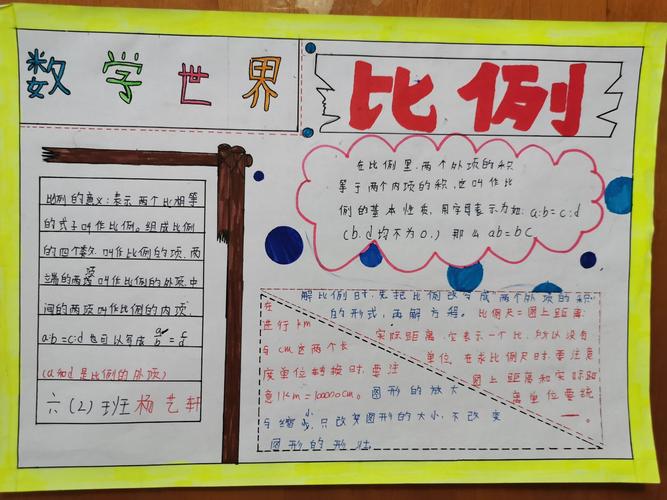 数学世界
比例
在比例里，两个外项的积
等于两个内项的积，也叫作比
例的基本性质，用字母表示为如：a:b=c:d
(b.d均不为0.) 那么ab=bc
比例的意义：表示两个比相等
的式子叫作比例。组成比例
的四个数.叫作比例的项，两
端的两项叫作比例的外项.中
间的两项叫作比例的内项.
a:b=c:d也可以写成a/b=c/d
(a和d是比例的外项)
六(2)班杨艺轩
解比例时，先把比例改写成两个外项的积
的形式，再解方程。比例尺=图上距离:
实际距离，它表示一个比，所以没有
单位，在求比例尺时，要注意
图上距离和实际距
离单位要统
一。
在
进行km
与cm这两个长
度单位转换时，要注
意1km=100000cm。图形的放大
与缩小，只改变图形的大小，不改变
图形的形状。